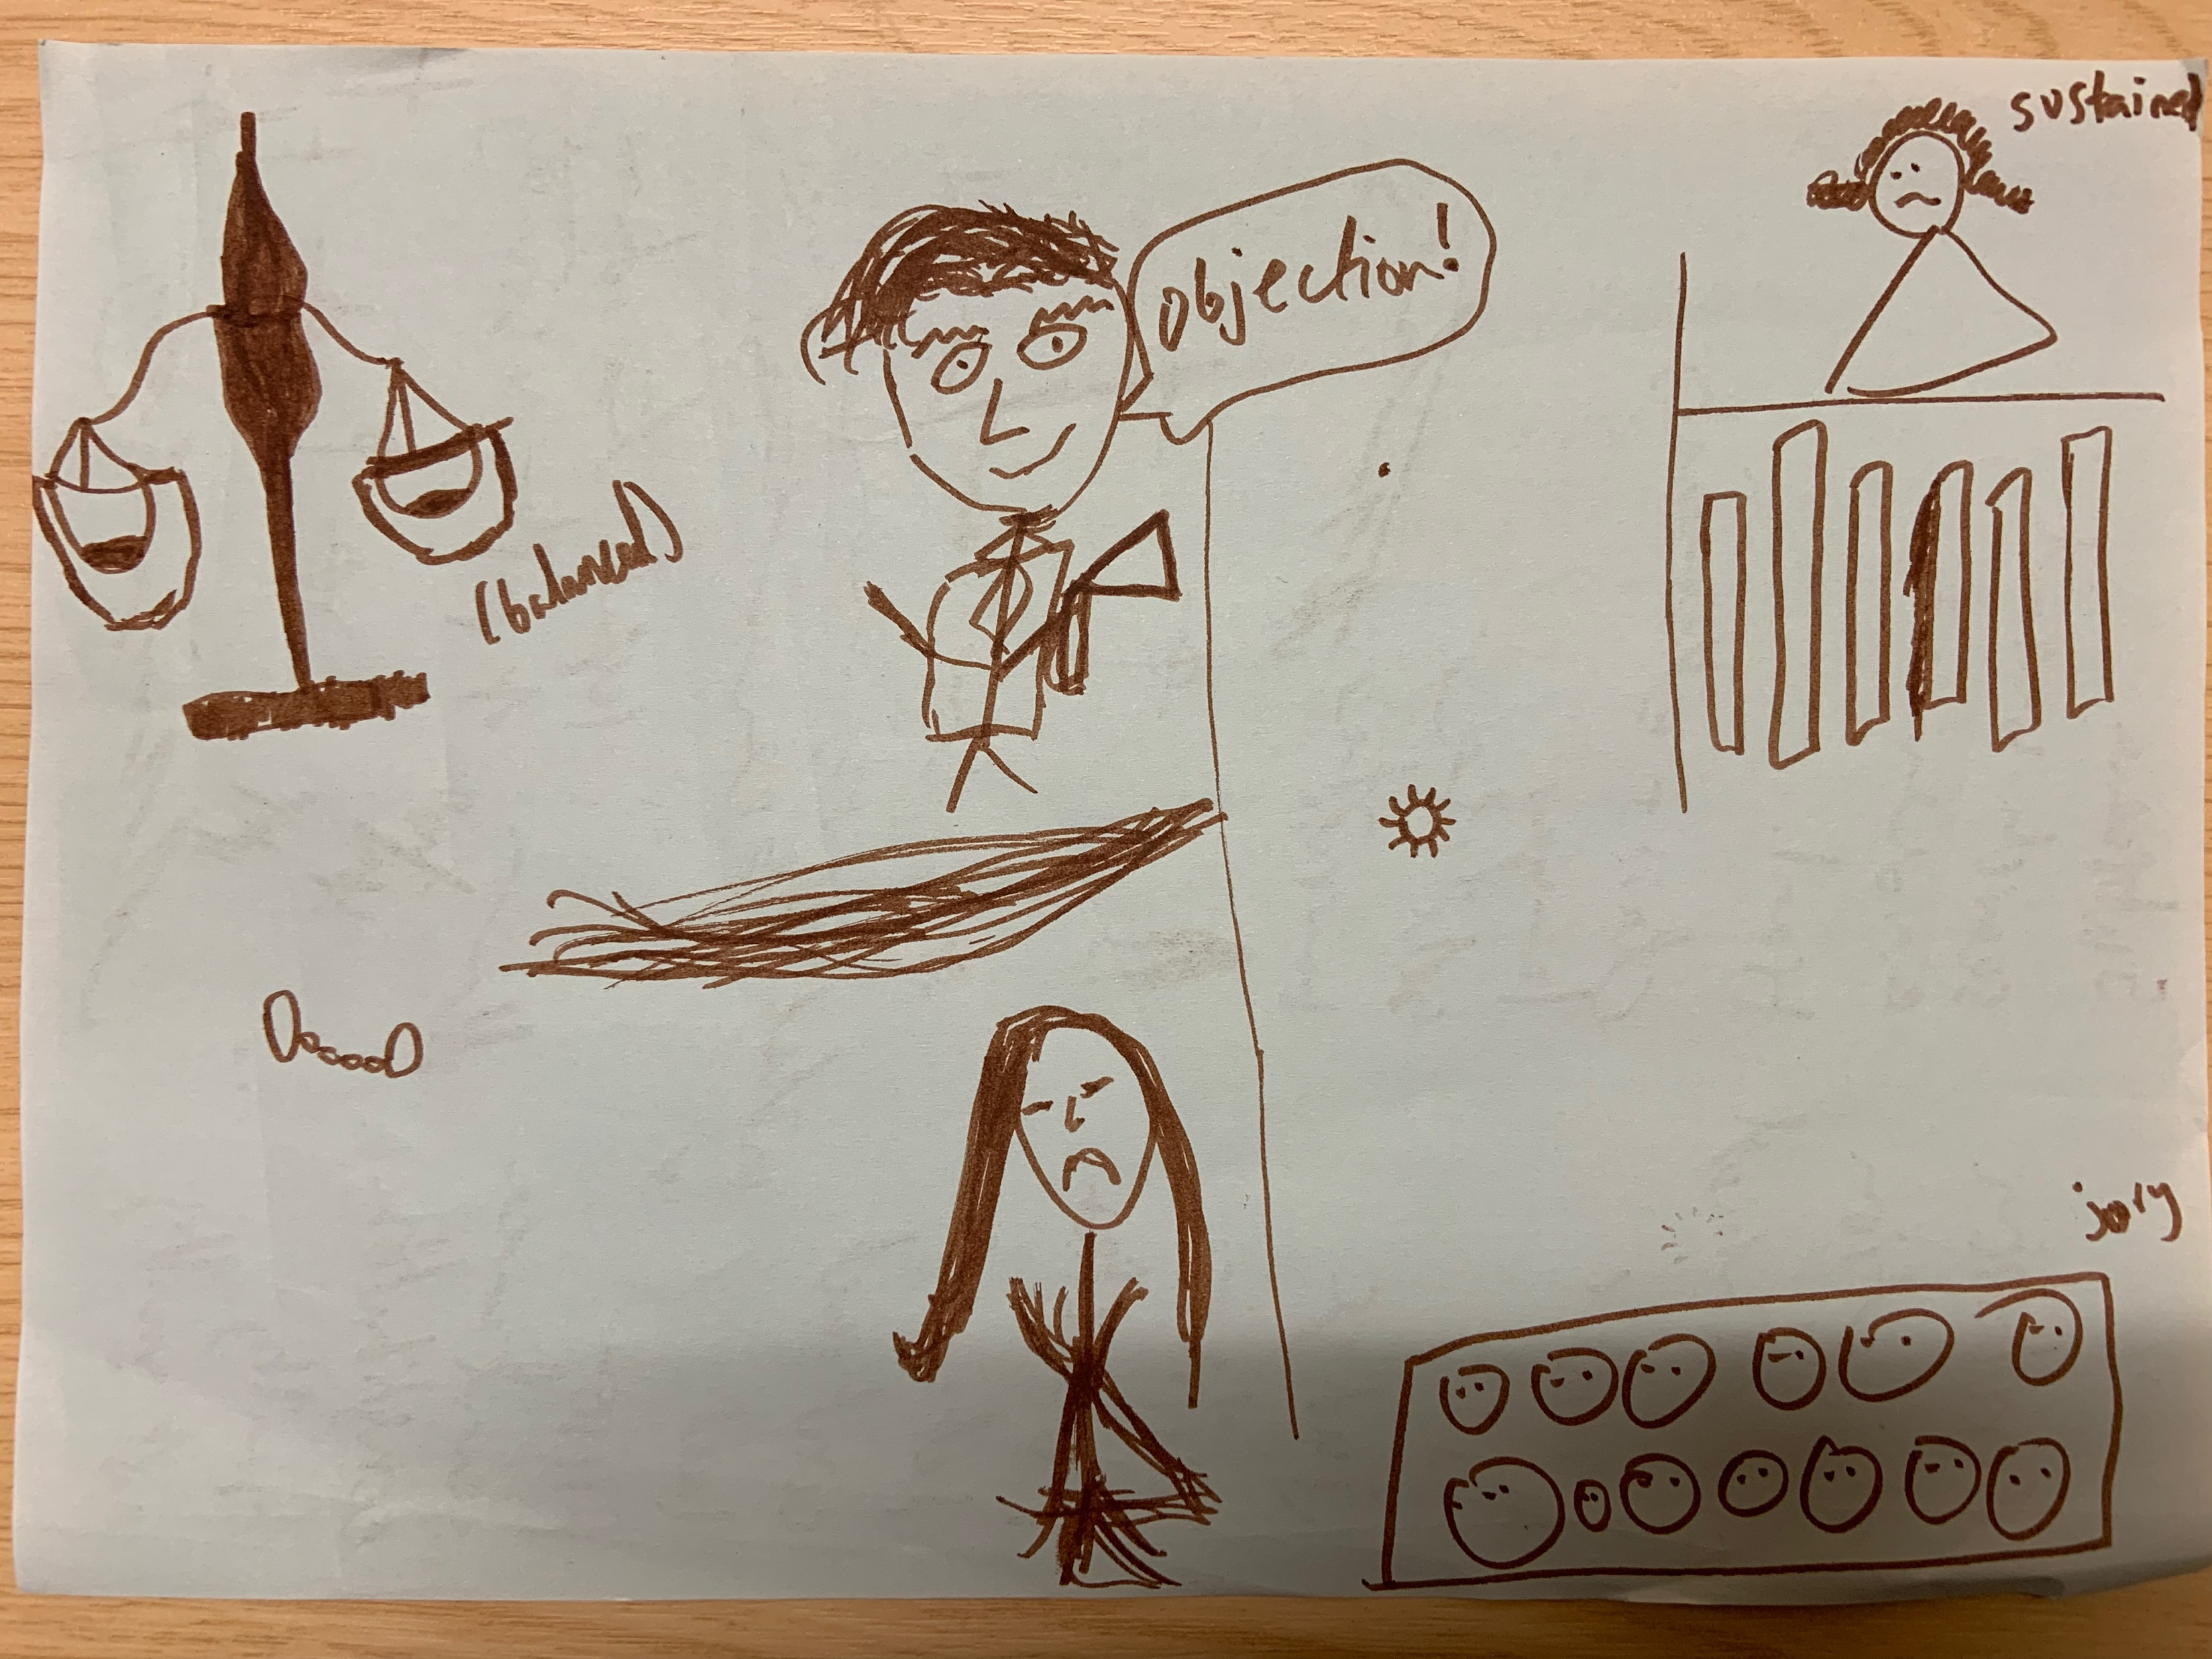 sustained
objection!
(balanced)
jury